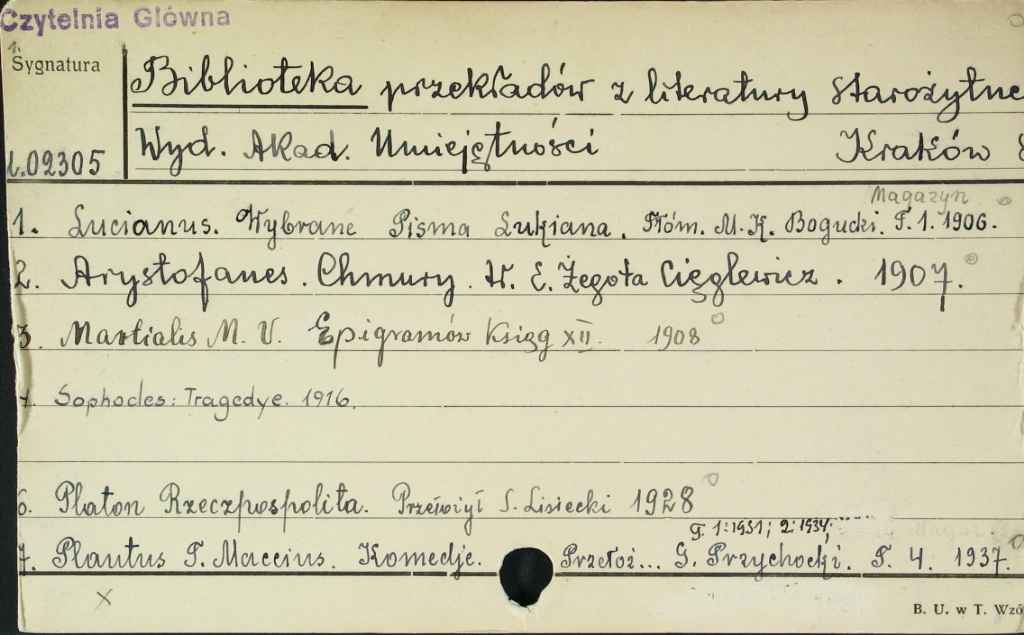 Czytelnia Główna
1.
Sygnatura
Biblioteka przekładów z literatury starożytne
Wyd. Akad. Umiejętności Kraków
1.02305
Magazyn
1. Lucianus. Wybrane Pisma Lukiana. Tłóm. M. K. Bogucki. T. 1. 1906.
2. Arystofanes. Chmury. W. E. Żegota Cięglewicz. 1907.
3. Martialis M. V. Epigramów Ksiąg XII. 1908
4. Sophocles: Tragedye. 1916.
6. Platon Rzeczpospolita. S. Lisiecki 1928
T. 1:1931; 2:1934;
7. Plautus T. Maccius. Komedje. Przełoż... G. Przychocki. T. 4. 1937.
X
B. U. w T. Wzó